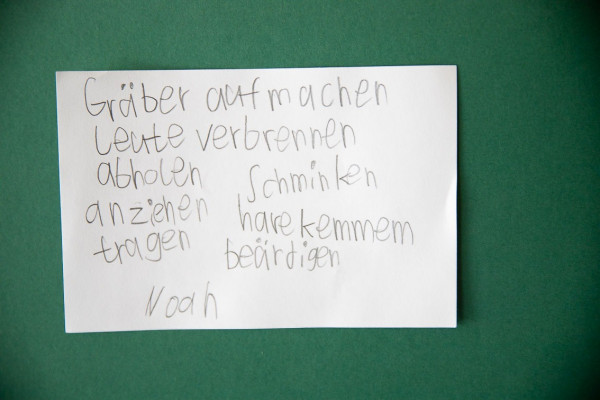 Gräber aufmachen
Leute verbrennen
abholen schminken
anziehen hare kemmem
tragen beärdigen
Noah